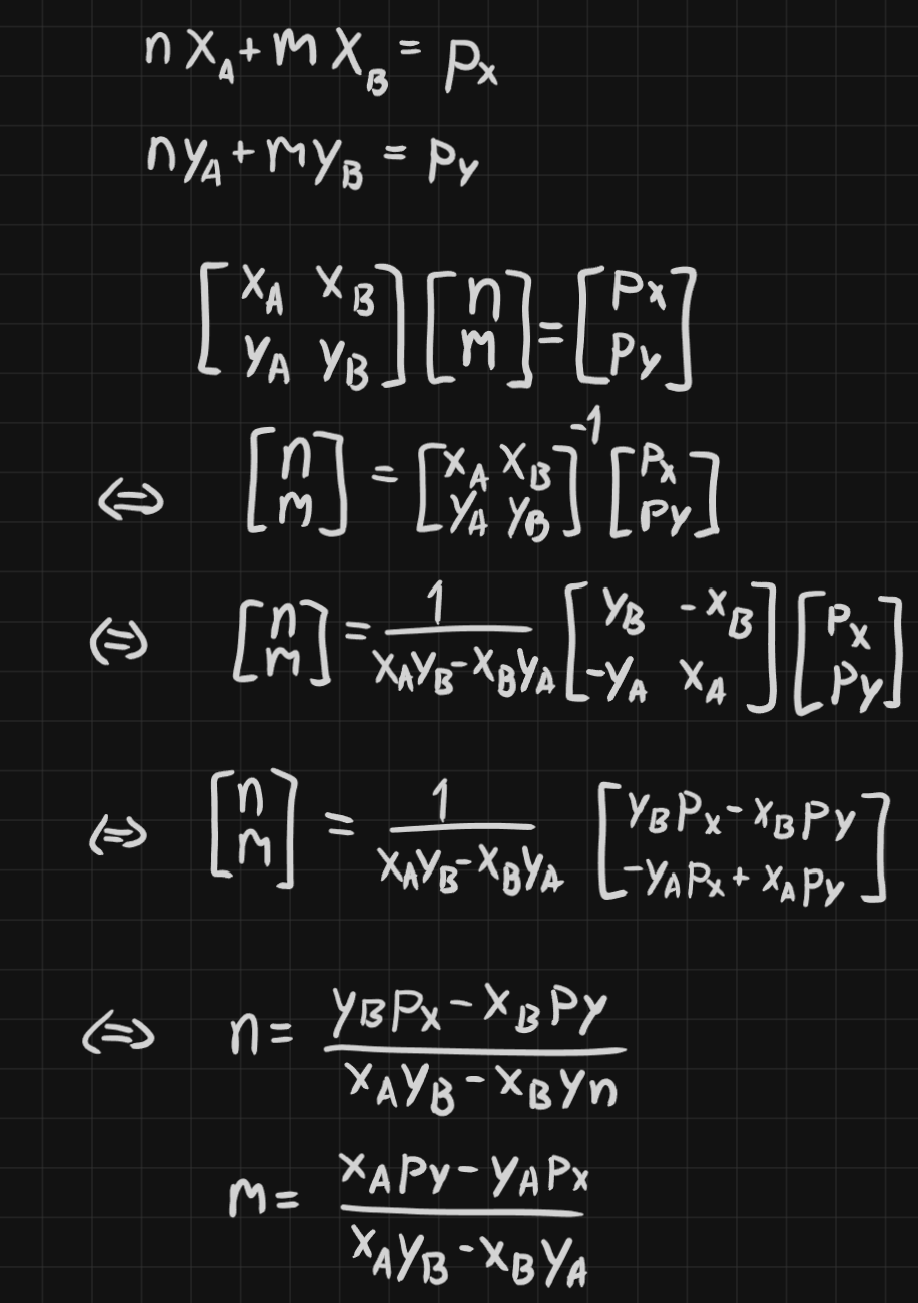 n x_A + m x_B = p_x
n y_A + m y_B = p_y
[x_A x_B; y_A y_B] [n; m] = [p_x; p_y]
⇔ [n; m] = [x_A x_B; y_A y_B]^-1 [p_x; p_y]
⇔ [n; m] = 1/(x_A y_B - x_B y_A) [y_B -x_B; -y_A x_A] [p_x; p_y]
⇔ [n; m] = 1/(x_A y_B - x_B y_A) [y_B p_x - x_B p_y; -y_A p_x + x_A p_y]
⇔ n = (y_B p_x - x_B p_y)/(x_A y_B - x_B y_n)
m = (x_A p_y - y_A p_x)/(x_A y_B - x_B y_A)